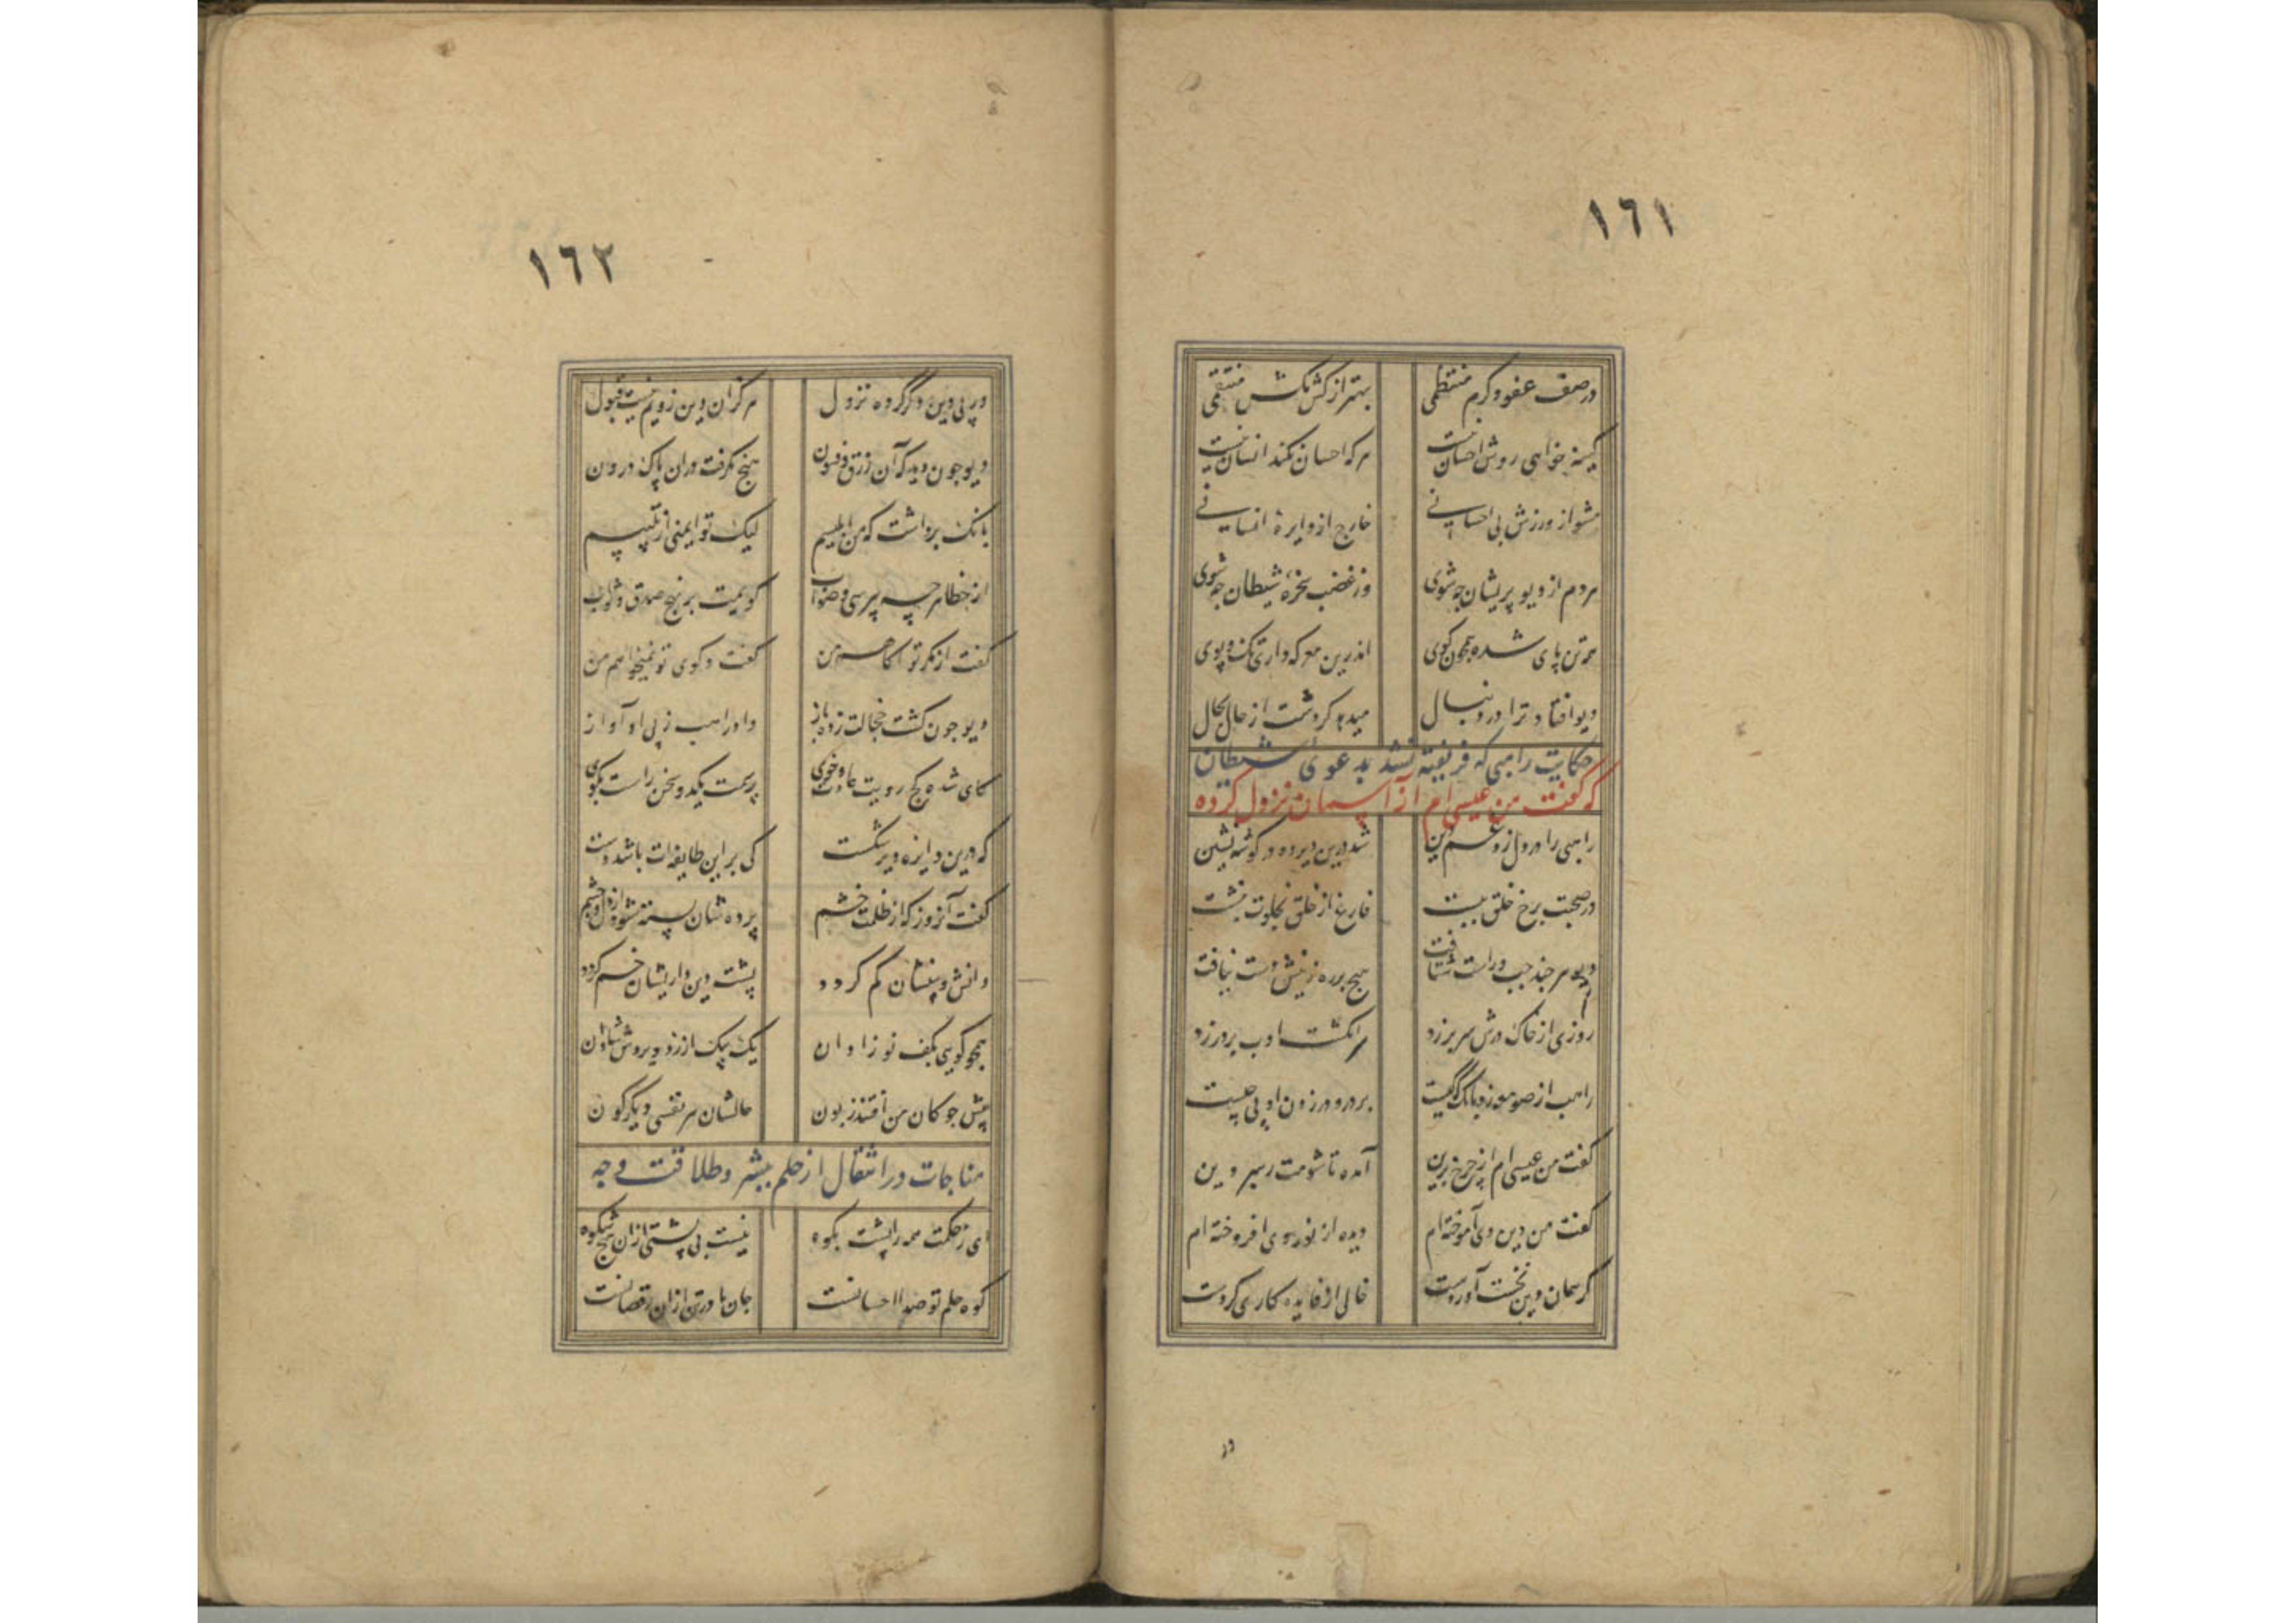 ١٦١
در صف عفو و کرم منتظمی
بهتر از کش مکش منتقمی
کینه خواهی روش احسان نیست
هر که احسان نکند انسان نیست
مشو از ورزش بی احسانی
خارج از دایرهٔ انسانی
هر دم از دیو پریشان چه شوی
وز غضب سخرهٔ شیطان چه شوی
همه تن پای شده همچون گوی
اندرین معرکه داری تک و پوی
دیو افتاد ترا در دنبال
میدهد گردشت از حال بحال
حکایت راهبی که فریفته نشد بدعوی شیطان
که گفت من عیسی ام از آسمان نزول کرده
راهبی را در دل زد غم دین
شد درین دیر ده در گوشه نشین
در صحبت برخ خلق ببست
فارغ از خلق بخلوت بنشست
دیو هر چند چپ و راست شتافت
هیچ بر رهزنیش دست نیافت
روزی از خاک درش سر بر زد
سر انگشت ادب بر در زد
راهب از صومعه زد بانک که کیست
بر در و در زدن او پی چیست
گفت من عیسی ام از چرخ برین
آمده تا شومت رهبر دین
گفت من دین وی آموخته ام
دیده از نور وی افروخته ام
گر همان دین نخست آوردست
خالی از فایده کاری کردست
در
١٦٢
ور پی دین دگر کرده نزول
هر گز آن دین زویم نیست قبول
دیو چون دید که آن زرق و فسون
هیچ نگرفت در آن پاک درون
بانک برداشت که من ابلیسم
لیک تو ایمنی از تلبیسم
از خطا هر چه بپرسی و صواب
گویمت بر نهج صدق جواب
گفت از مکر تو آکاهم من
گفت و گوی تو نمیخواهم من
دیو چون گشت خجالت زده باز
داد راهب ز پی او آواز
کای شده کج رویت عادت و خوی
پرسمت یکدو سخن راست بگوی
که درین دایره دیر شکست
کی بر این طایفه ات باشد دست
گفت آنروز که از ظلمت خشم
پرده شان بسته شود از دل و چشم
دانش و بینششان گم گردد
پشت دین داریشان خم گردد
همچو گویی بکف نو زادان
یک بیک از زد و برد ش شادان
پیش چوکان من افتند زبون
حالشان هر نفسی دیگرگون
مناجات در انتقال از حلم ببشر و طلاقت وجه
ای ز حکمت همه را پشت بکوه
نیست بی پشتی ازان هیچ شکوه
کوه حلم تو صدا احسانست
جان ما در تن ازان رقصانست